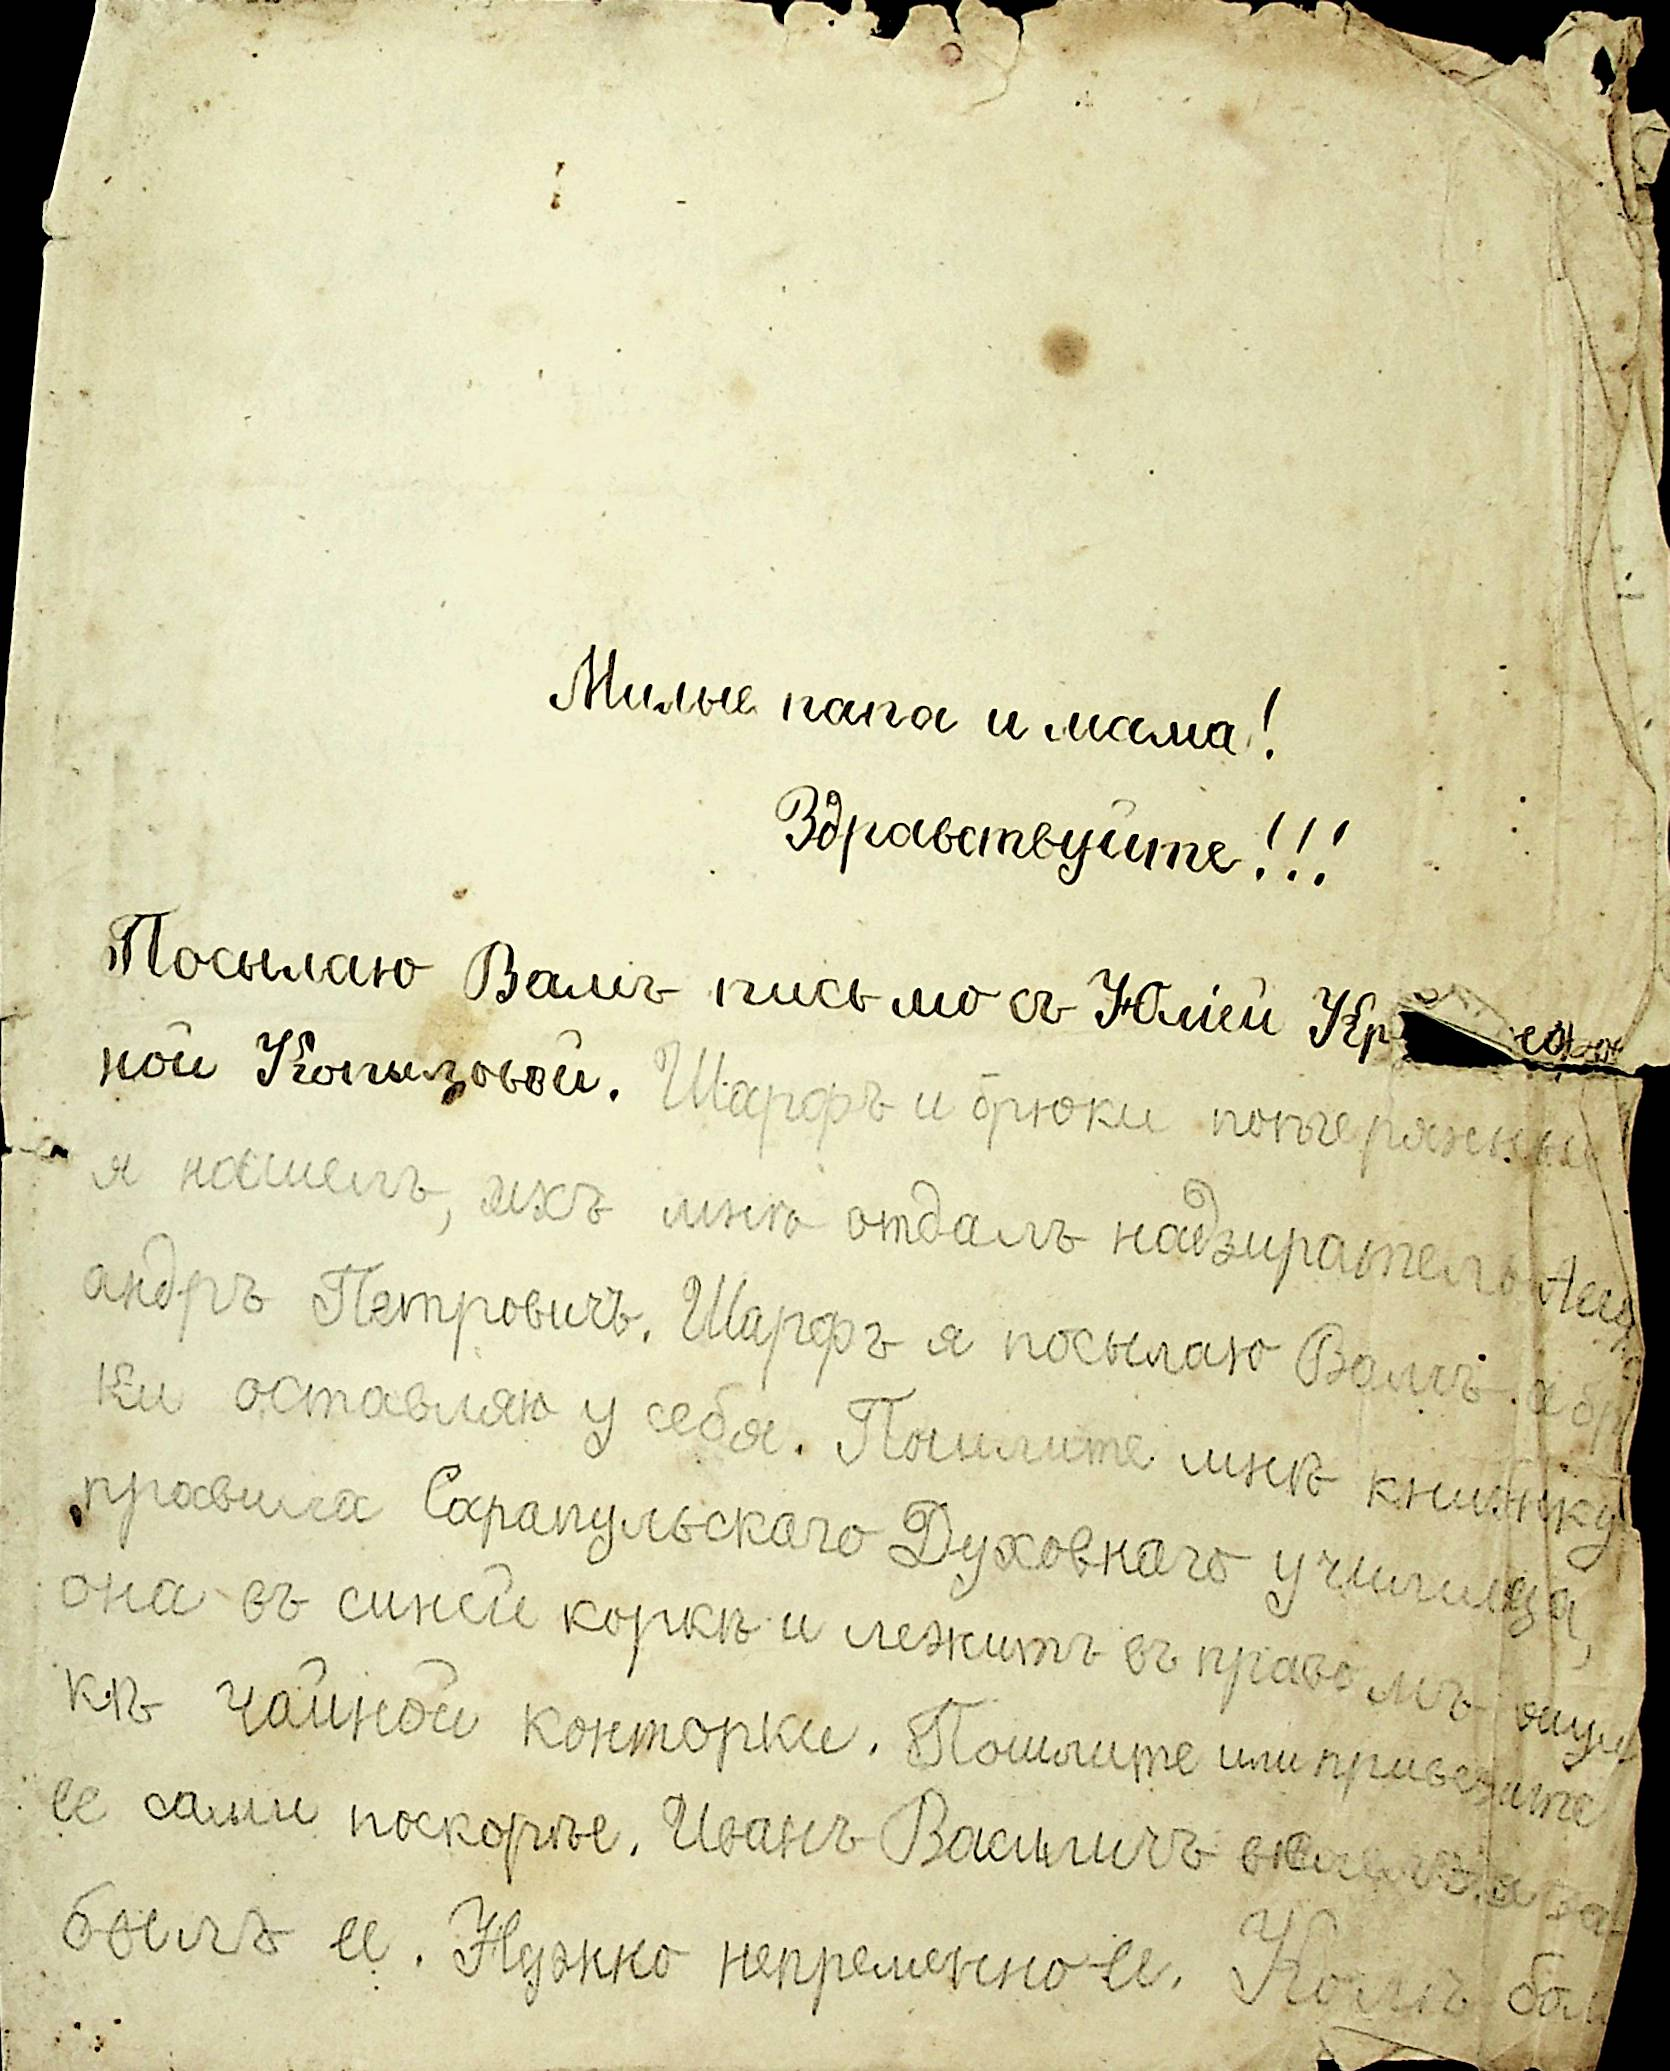 Милые папа и мама!
Здравствуйте!!!
Посылаю Вамъ письмо съ Юліей Кр
ной Копыловой. Шарфъ и брюки потеряные
я нашелъ, ихъ мнѣ отдалъ надзиратель Алек
андръ Петровичъ. Шарфъ я посылаю Вамъ а брю
ки оставляю у себя. Пошлите мнѣ книжку
правила Сарапульскаго Духовнаго училища,
она въ синей коркѣ и лежитъ въ правомъ ящи
кѣ чайной конторки. Пошлите или привезите
ее сами поскорѣе. Иванъ Василичъ велелъ, а за-
былъ ее. Нужно непременно ее. Колѣ